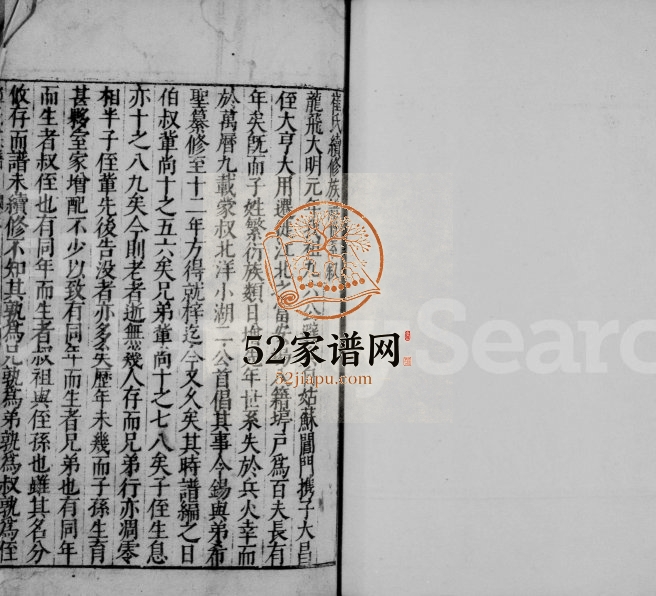 崔氏續修族譜
龍飛大明元年我祖九公 姑蘇閶門携子大昌
侄大亨大用選徙江北之富安 籍塲戸為百夫長有
年矣旣而子姓繁衍族類日 年世系失於兵火幸而
於萬曆九載家叔北洋小湖二公首倡其事令錫與弟希
聖纂修至十二年方得就梓迄今又久矣其時譜編之日
伯叔董尚十之五六矣兄弟董尚十之七八矣子侄生息
亦十之八九矣今則老者逝無幾人存而兄弟行亦凋零
相半子侄董先後告没者亦多矣歷年未幾而子孫生育
甚夥室家增配不少以致有同年而生者兄弟也有同年
而生者叔侄也有同年而生者叔祖與侄孫也雖其名分
攸存而譜未續修不知其孰為兄孰為弟孰為叔孰為侄
52家谱网
52jiapu.com
FamilySearch